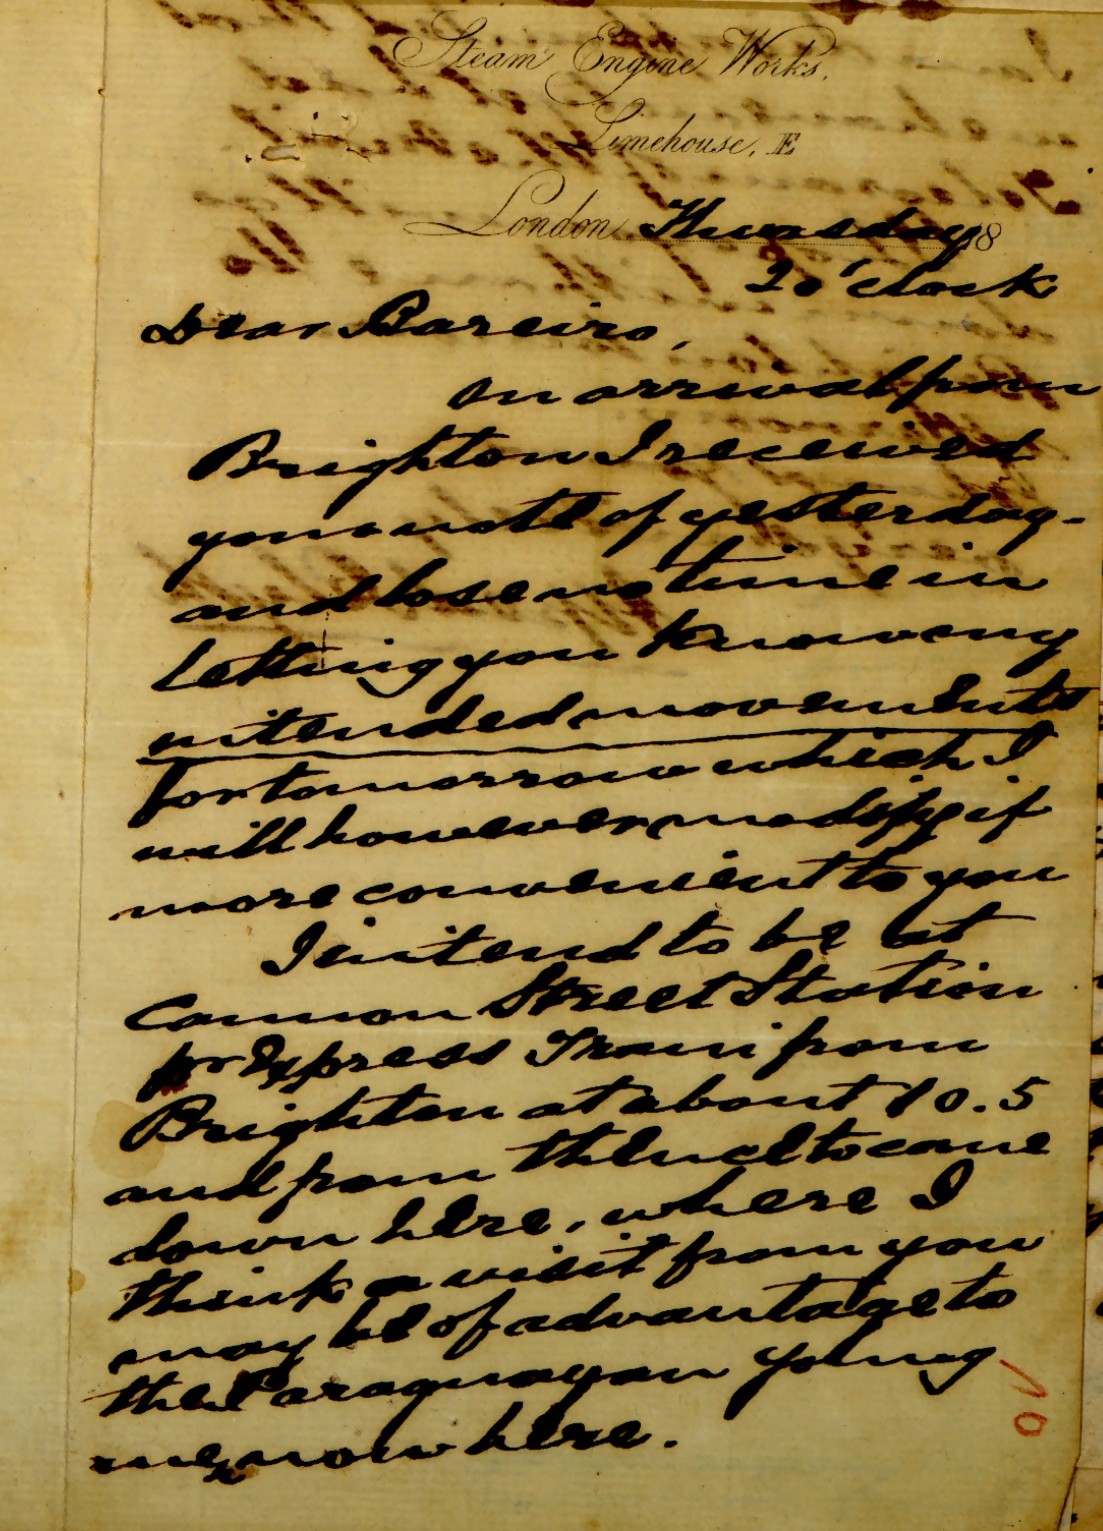 Steam Engine Works,
Limehouse, E
London Thursday 18
2 o'clock
Dear Bareiro,
On arrival from
Brighton I received
your note of yesterday -
and lose no time in
letting you know my
intended movements
for tomorrow which I
will however modify if
more convenient to you
I intend to be at
Cannon Street Station
pr Express Train from
Brighton at about 10.5
and from thence to come
down here, where I
think a visit from you
may be of advantage to
the Paraguayan young
men now here.
10